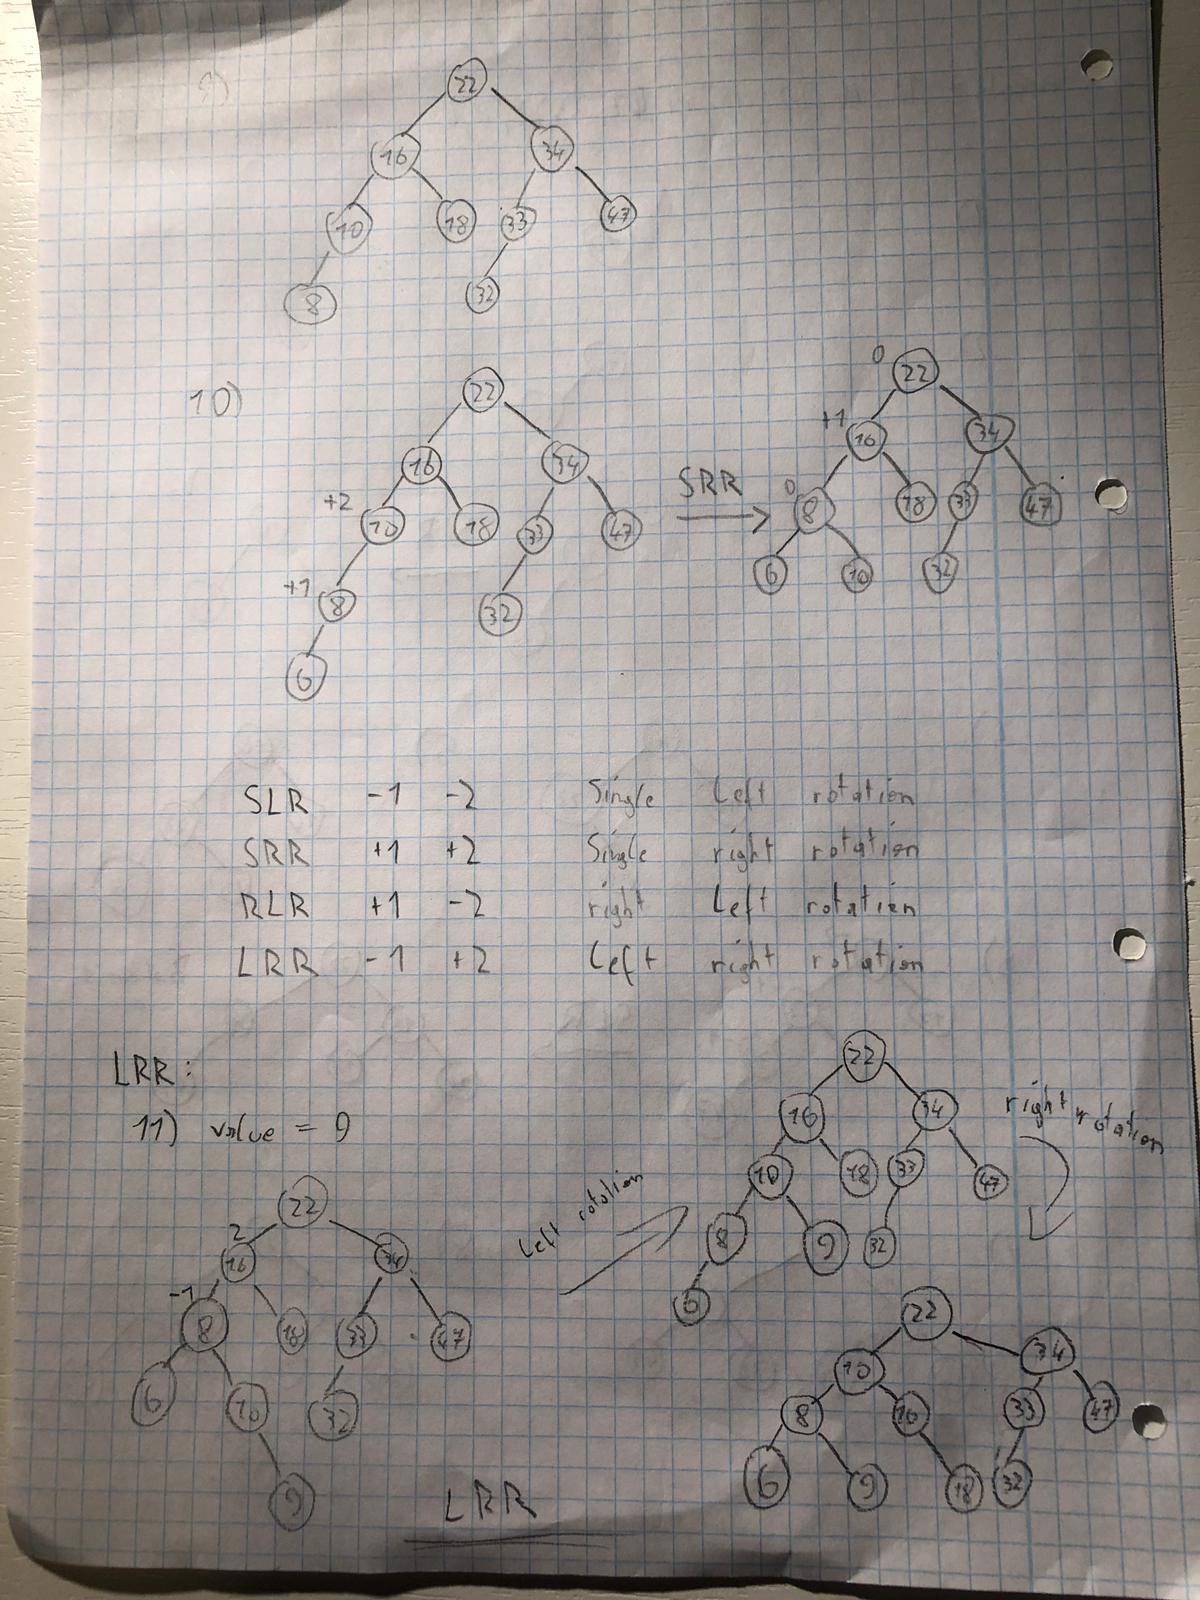 9)
22
16 34
10 18 33 47
8 32
10)
22
16 34
+2 10 18 33 47
+1 8 32
6
SRR
0 22
+1 16 34
0 8 18 33 47
6 10 32
SLR -1 -2 Single Left rotation
SRR +1 +2 Single right rotation
RLR +1 -2 right Left rotation
LRR -1 +2 Left right rotation
LRR:
11) value = 9
22
2 16 34
-1 8 18 33 47
6 10 32
9
Left rotation
22
16 34
10 18 33 47
8 9 32
6
right rotation
22
10 34
8 16 33 47
6 9 18 32
LRR